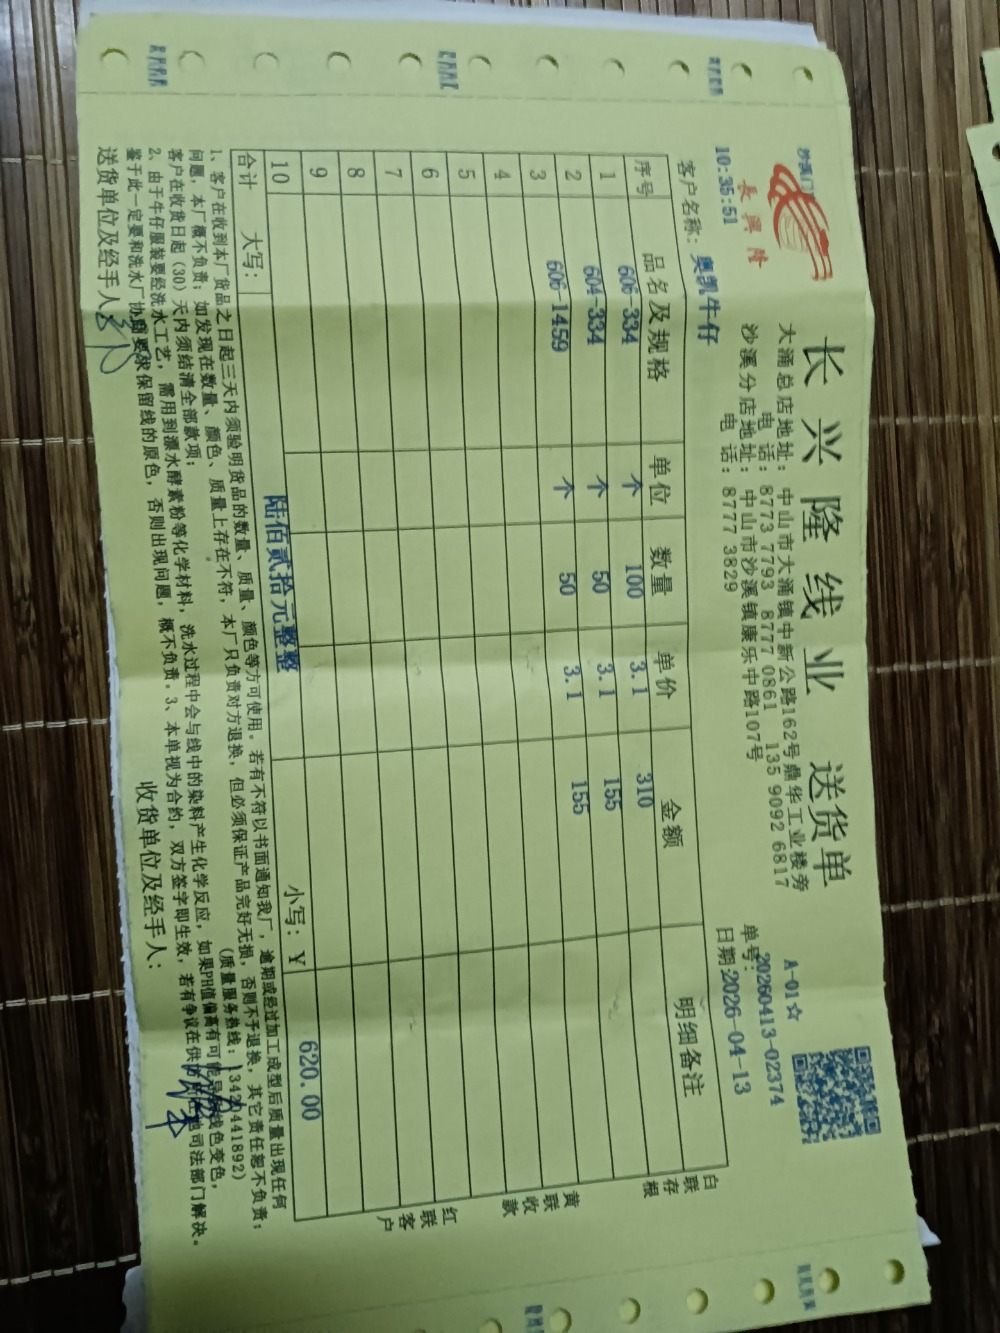 長興隆
长兴隆线业 送货单
大涌总店地址：中山市大涌镇中新公路162号鼎华工业楼旁
电话：8773 7793 8777 0861 135 9092 6817
沙溪分店地址：中山市沙溪镇康乐中路107号
电话：8777 3829
A-01☆
单号：20260413-02374
日期：2026-04-13
10:35:51
客户名称：奥凯牛仔
序号 品名及规格 单位 数量 单价 金额 明细备注
1 606-334 个 100 3.1 310
2 604-334 个 50 3.1 155
3 606-1459 个 50 3.1 155
4
5
6
7
8
9
10
合计 大写：陆佰贰拾元整整 小写：￥ 620.00
1、客户在收到本厂货品之日起三天内须验明货品的数量、质量、颜色等方可使用。若有不符以书面通知我厂，逾期或经过加工成型后质量出现任何
问题，本厂概不负责；如发现在数量、颜色、质量上存在不符，本厂只负责对方退换，但必须保证产品完好无损，否则不予退换，其它责任恕不负责；
客户在收货日起（30）天内须结清全部款项； （质量服务热线：13421441892）
2、由于牛仔服装要经洗水工艺，需用到漂水酵素粉等化学材料，洗水过程中会与线中的染料产生化学反应，如果PH值偏高有可能导致线色变色，
鉴于此一定要和洗水厂协商要求保留线的原色，否则出现问题，概不负责。3、本单视为合约，双方签字即生效，若有争议在供方所在地司法部门解决。
送货单位及经手人： 收货单位及经手人：
白联存根
黄联收款
红联客户